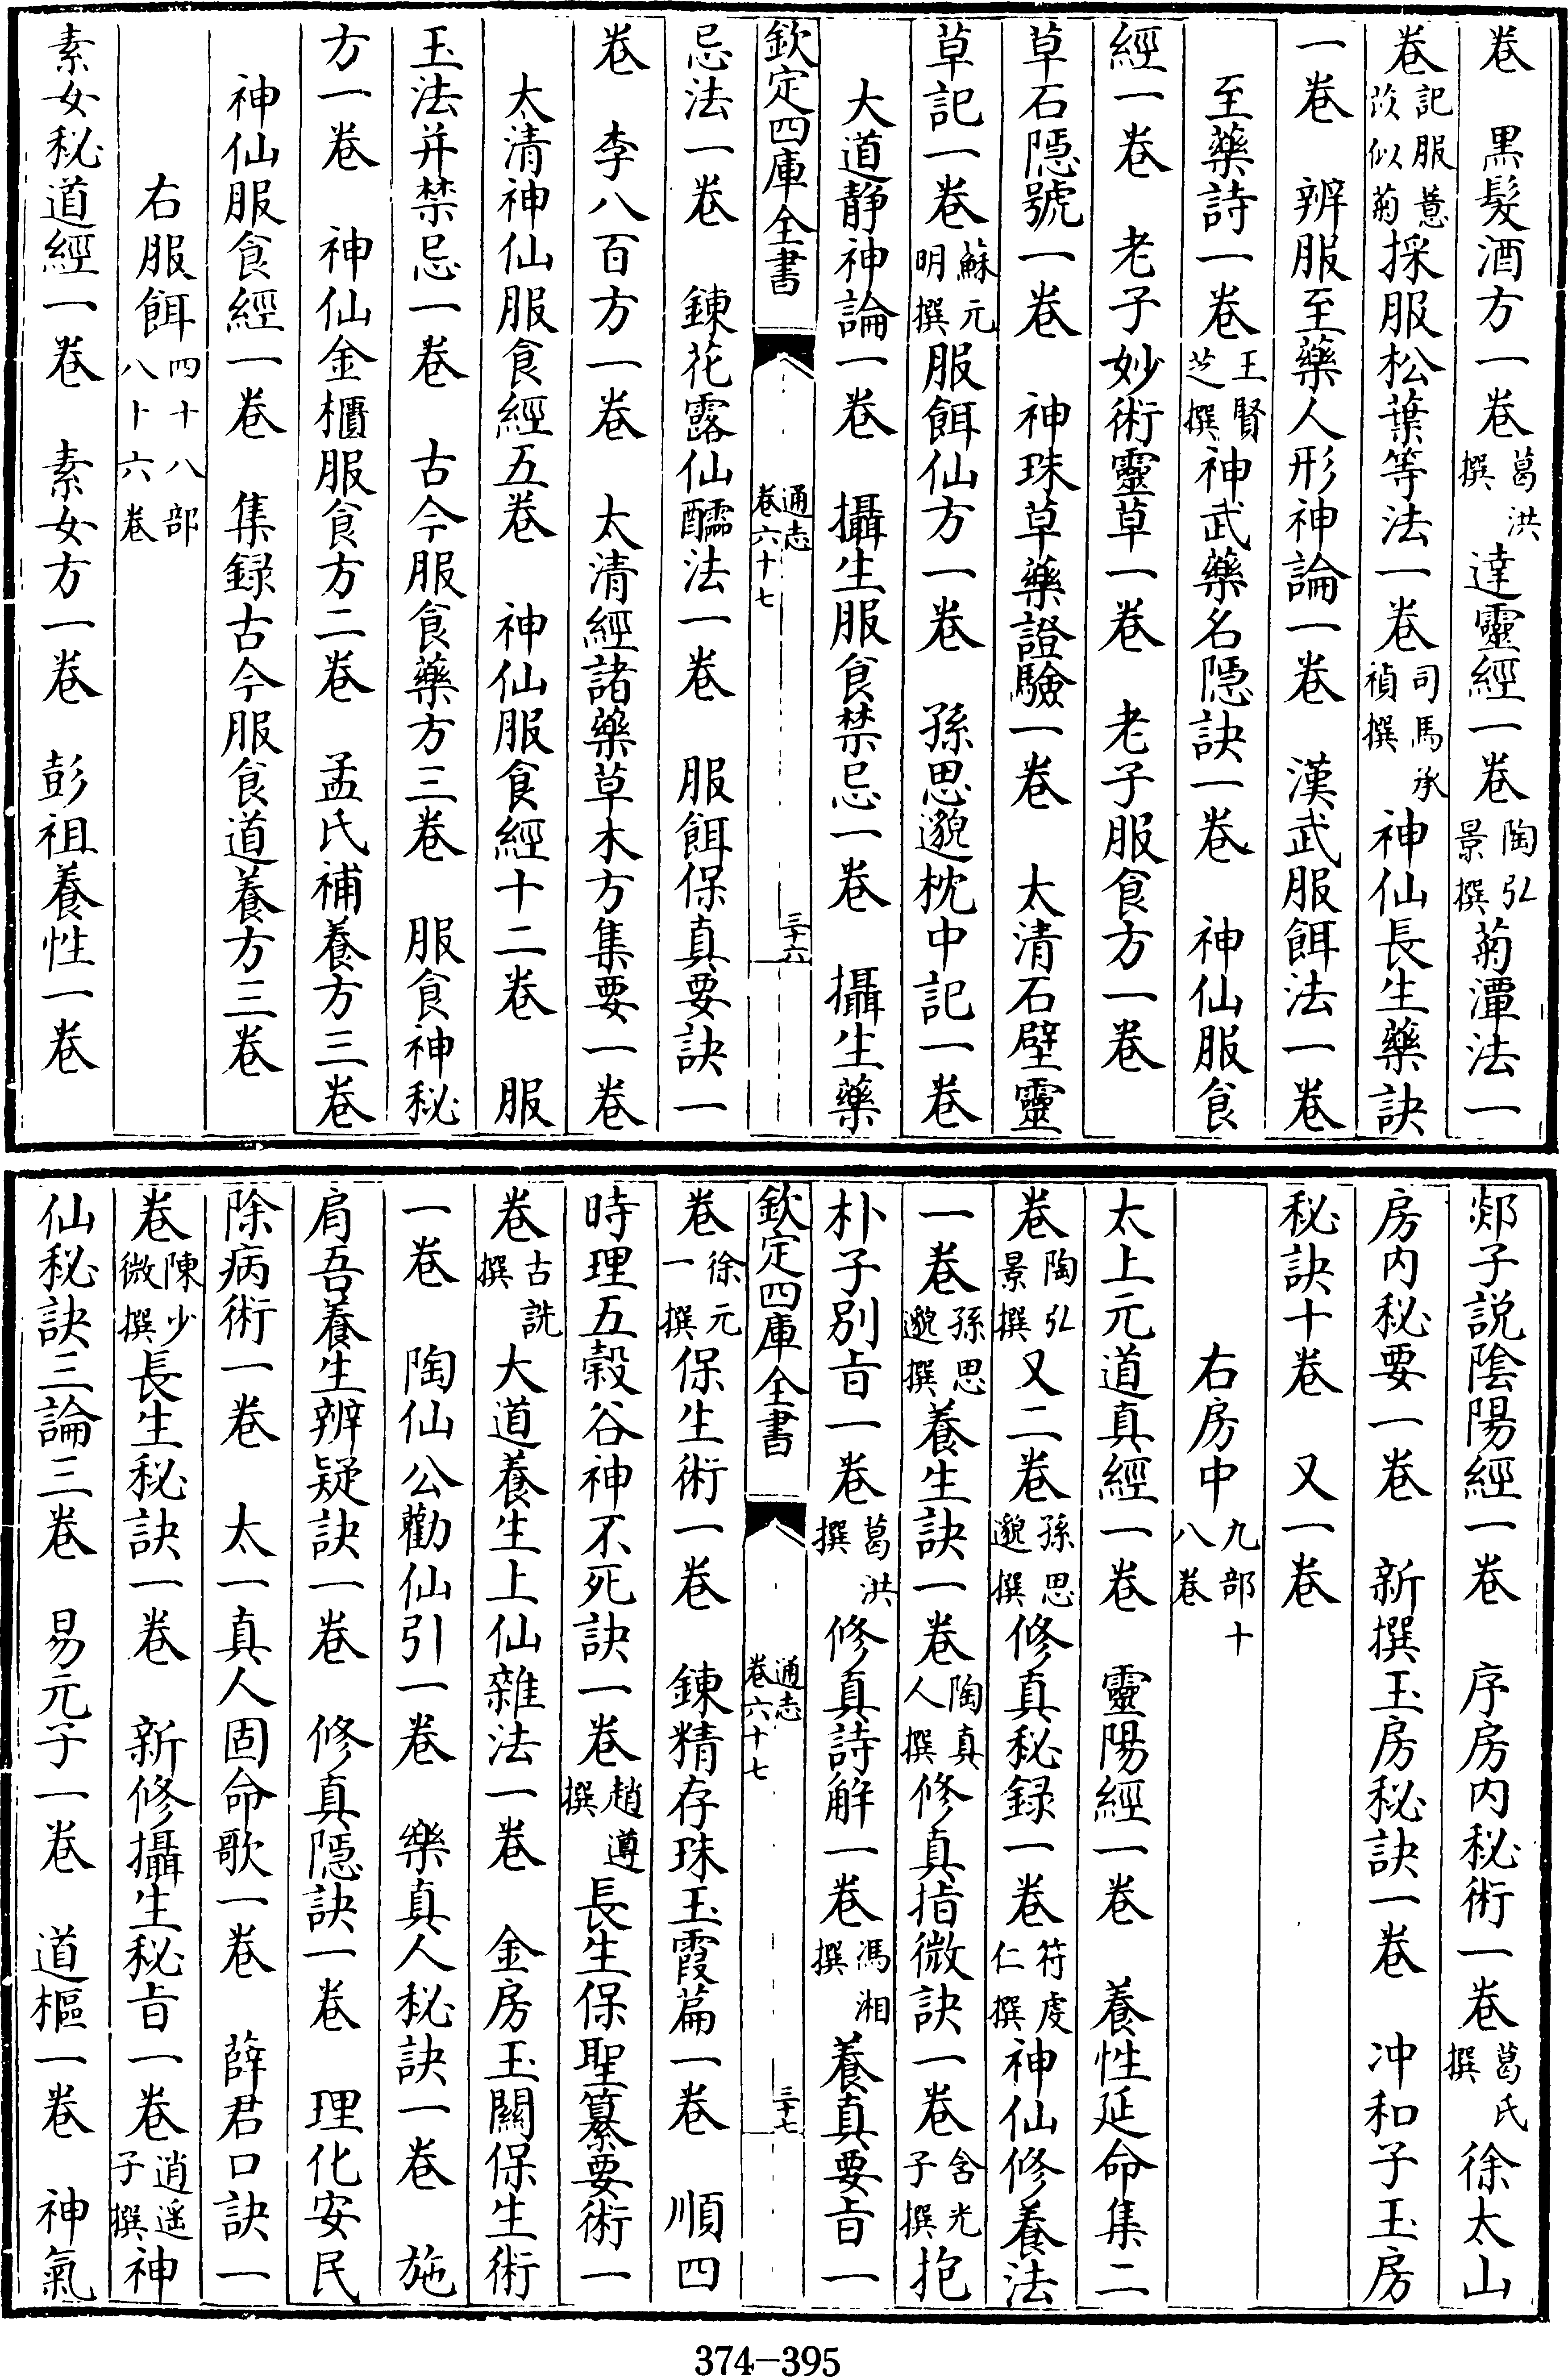 卷　黒髮酒方一卷葛洪撰達靈經一卷陶弘景撰菊潭法一
卷記服薏苡似菊採服松葉等法一卷司馬承禎撰神仙長生藥訣
一卷　辨服至藥人形神論一卷　漢武服餌法一卷
至藥詩一卷王賢芝撰神武藥名隱訣一卷　神仙服食
經一卷　老子妙術靈草一卷　老子服食方一卷
草石隱號一卷　神珠草藥證驗一卷　太清石壁靈
草記一卷蘇元明撰服餌仙方一卷　孫思邈枕中記一卷
大道靜神論一卷　攝生服食禁忌一卷　攝生藥
欽定四庫全書　通志卷六十七　三十六
忌法一卷　鍊花露仙醹法一卷　服餌保真要訣一
卷　李八百方一卷　太清經諸藥草木方集要一卷
太清神仙服食經五卷　神仙服食經十二卷　服
玉法并禁忌一卷　古今服食藥方三卷　服食神秘
方一卷　神仙金櫃服食方二卷　孟氏補養方三卷
神仙服食經一卷　集録古今服食道養方三卷
右服餌四十八部八十六卷
素女秘道經一卷　素女方一卷　彭祖養性一卷
郯子説陰陽經一卷　序房内秘術一卷葛氏撰徐太山
房内秘要一卷　新撰玉房秘訣一卷　冲和子玉房
秘訣十卷　又一卷
右房中九部十八卷
太上元道真經一卷　靈陽經一卷　養性延命集二
卷陶弘景撰又二卷孫思邈撰修真秘録一卷符虔仁撰神仙修養法
一卷孫思邈撰養生訣一卷陶真人撰修真指微訣一卷含光子撰抱
朴子别㫖一卷葛洪撰修真詩解一卷馮湘撰養真要㫖一
欽定四庫全書　通志卷六十七　三十七
卷徐元一撰保生術一卷　鍊精存珠玉霞篇一卷　順四
時理五穀谷神不死訣一卷趙遵撰長生保聖纂要術一
卷古詵撰大道養生上仙雜法一卷　金房玉關保生術
一卷　陶仙公勸仙引一卷　樂真人秘訣一卷　施
肩吾養生辨疑訣一卷　修真隱訣一卷　理化安民
除病術一卷　太一真人固命歌一卷　薛君口訣一
卷陳少微撰長生秘訣一卷　新修攝生秘㫖一卷逍遥子撰神
仙秘訣三論三卷　易元子一卷　道樞一卷　神氣
374—395